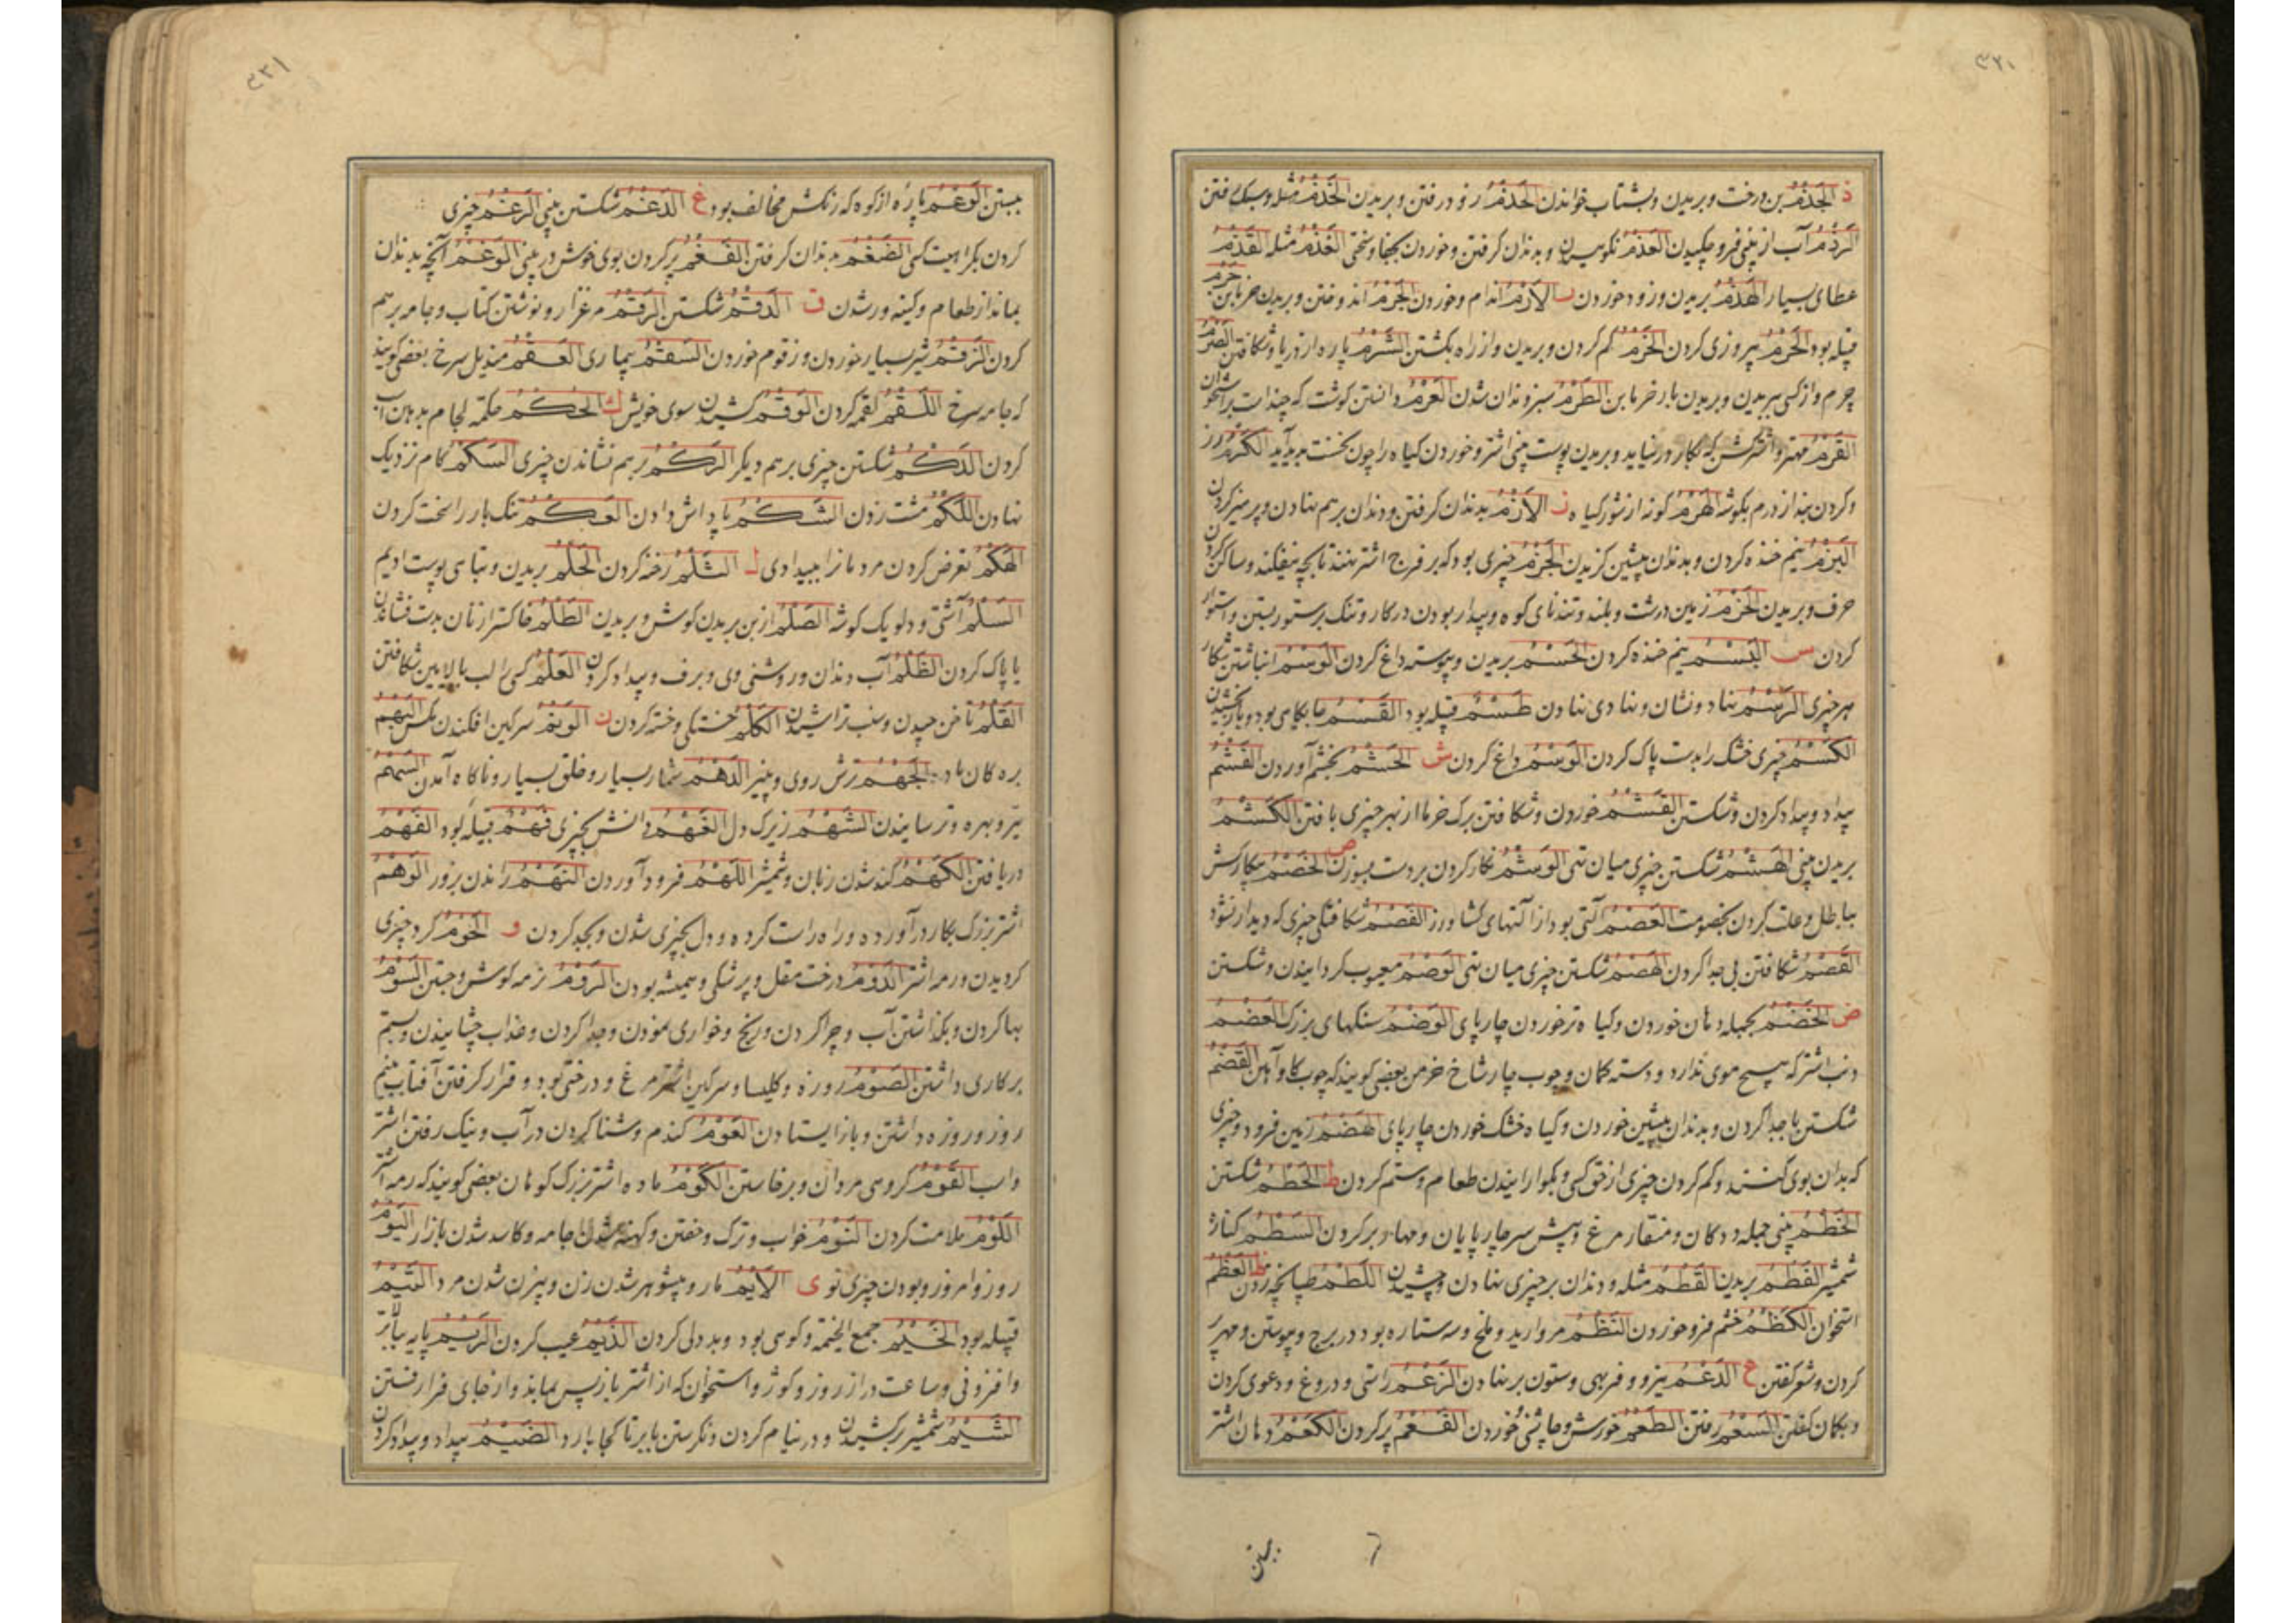 ٣٢٠
ذ الجَذْمُ بن درخت و بریدن و بشتاب خواندن الحَذْمُ زود رفتن و بریدن الخَذْمُ مثله و سبک رفتن
الرَذْمُ آب از بینی فرو چکیدن العَذْمُ نکوهیدن و بدندان گرفتن و خوردن بجفا و سختی الغَذْمُ مثله القَذْمُ
عطای بسیار الهَذْمُ بریدن و زود خوردن الأَرْمُ اندام و خوردن الجَرْمُ اندوختن و بریدن خرما بن جَرْم
قبیله بود الحَرْمُ پیروزی کردن الخَرْمُ کم کردن و بریدن و از راه بگشتن الشَرْمُ پاره از دریا و شکافتن الصَرْمُ
چرم و از کسی ببریدن و بریدن بار خرما بن الطَرْمُ سبز دندان شدن العَرْمُ دانستن گوشت که چند است بر استخوان
القَرْمُ مهتر و اشتر گشن که بکار در نیاید و بریدن پوست بینی اشتر و خوردن گیاه را چون نخست پدید آید الکَرْمُ رز
و گردن بند از درم بگوشه الهَرْمُ گونه از شور گیاه ز الأَزْمُ بدندان گرفتن و دندان بر هم نهادن و پرهیز کردن
البَزْمُ نیم خنده کردن و بدندان پیشین گزیدن الجَزْمُ چیزی بود که بر فرج اشتر نهند تا بچه نیفکند و ساکن کردن
حرف و بریدن الحَزْمُ زمین درشت و بلند و تندنای کوه و بیدار بودن در کار و تنگ بر ستور بستن و استوار
کردن س البَسْمُ نیم خنده کردن الحَسْمُ بریدن و پیوسته داغ کردن الوَسْمُ انباشتن شکار
هر چیزی الرَسْمُ نهاد و نشان و نهادی نهادن طَسْمٌ قبیله بود القَسْمُ جایگاهی بود و بازبخشیدن
الکَسْمُ چیزی خشک را بدست پاک کردن الوَسْمُ داغ کردن ش الحَشْمُ بخشم آوردن الغَشْمُ
بیداد و بیداد کردن و شکستن القَشْمُ خوردن و شکافتن برگ خرما از بهر چیزی بافتن الکَشْمُ
بریدن بینی الهَشْمُ شکستن چیزی میان تهی الوَشْمُ نگار کردن بر دست بسوزن ص الخَصْمُ پیکارکش
بباطل و علت کردن بخصومت العَصْمُ آلتی بود از آلتهای کشاورز الفَصْمُ شکافتگی چیزی که دیدار نشود
القَصْمُ شکافتن بی جدا کردن الهَصْمُ شکستن چیزی میان تهی الوَصْمُ معیوب گردانیدن و شکستن
ض الخَضْمُ بجمله دهان خوردن و گیاه تر خوردن چارپای الوَضْمُ سنگهای بزرگ العَضْمُ
دنب اشتر که هیچ موی ندارد و دسته کمان و چوب چارشاخ خرمن بعضی گویند که چوب گاوآهن القَضْمُ
شکستن با جدا کردن و بدندان پیشین خوردن و گیاه خشک خوردن چارپای الهَضْمُ زمین فرود و چیزی
که بدان بوی کنند و کم کردن چیزی از حق کسی و بگوارانیدن طعام و ستم کردن ط الحَطْمُ شکستن
الخَطْمُ بینی جمله ددگان و منقار مرغ و پیش سر چارپایان و مهار بر کردن السَطْمُ کناره
شمشیر الفَطْمُ بریدن القَطْمُ مثله و دندان بر چیزی نهادن و چشیدن اللَطْمُ طپانچه زدن ظ العَظْمُ
استخوان الکَظْمُ خشم فرو خوردن النَظْمُ مروارید و ملخ و سه ستاره بود در برج و پیوستن و مهره بر
کردن و شعر گفتن ع الدَعْمُ نیرو و فربهی و ستون بر نهادن الزَعْمُ راستی و دروغ و دعوی کردن
و بگمان گفتن السَعْمُ رفتن الطَعْمُ خورش و چاشنی خوردن الفَعْمُ پر کردن الکَعْمُ دهان اشتر
ببستن
٣٢١
ببستن الوَعْمُ پاره از کوه که رنگش مخالف بود غ الدَغْمُ شکستن بینی الرَغْمُ چیزی
کردن بکراهیت کسی الضَغْمُ بدندان گرفتن الفَغْمُ پر کردن بوی خوش در بینی الوَغْمُ آنچه بدندان
بماند از طعام و کینه ور شدن ق الدَقْمُ شکستن الرَقْمُ مرغزار و نوشتن کتاب و جامه برسم
کردن الزَقْمُ شیر بسیار خوردن و زقوم خوردن السَقْمُ بیماری العَقْمُ مندیل سرخ بعضی گویند
که جامه سرخ اللَقْمُ لقمه کردن الوَقْمُ کشیدن سوی خویش ك الحَکْمُ حکمه لجام بدهان اسب
کردن الدَکْمُ شکستن چیزی بر هم دیگر الرَکْمُ بر هم نشاندن چیزی السَکْمُ گام نزدیک
نهادن اللَکْمُ مشت زدن الشَکْمُ پاداش دادن العَکْمُ تنگ بار را سخت کردن
الهَکْمُ تعرض کردن مردمان را ببیدادی ل الثَلْمُ رخنه کردن الحَلْمُ بریدن و تباهی پوست ادیم
السَلْمُ آشتی و دلو یک گوشه الصَلْمُ از بن بریدن گوش و بریدن الطَلْمُ خاکستر از نان بدست فشاندن
یا پاک کردن الظَلْمُ آب دندان و روشنی وی و برف و بیداد کردن العَلْمُ کسی را لب بالایین شکافتن
القَلْمُ ناخن چیدن و سنب تراشیدن الکَلْمُ خستگی و خسته کردن ن الوَنْمُ سرگین افکندن مگس البَهْمُ
بره گان ماده الجَهْمُ ترش روی و پنیر الدَهْمُ شمار بسیار و خلق بسیار و ناگاه آمدن السَهْمُ
تیر و بهره و ترسانیدن الشَهْمُ زیرک دل الفَهْمُ دانش بچیزی فَهْمٌ قبیله بود الفَهْمُ
دریافتن الکَهْمُ کند شدن زبان و شمشیر اللَهْمُ فرود آوردن النَهْمُ راندن بزور الوَهْمُ
اشتر بزرگ بکار درآورده و راه راست کرده و دل بچیزی شدن و بجد کردن و الحَوْمُ گرد چیزی
گردیدن و رمه اشتر الدَوْمُ درخت مقل و پزشکی و همیشه بودن الرَوْمُ نرمه گوش و جستن السَوْمُ
بها کردن و بگذاشتن آب و چرا کردن و رنج و خواری نمودن و جدا کردن و عذاب چشانیدن و ستم
بر کاری داشتن الصَوْمُ روزه و کلیسا و سرگین اشتر مرغ و درختی بود و قرار گرفتن آفتاب نیم
روز و روزه داشتن و باز ایستادن العَوْمُ گندم و شنا کردن در آب و نیک رفتن اشتر
و اسب القَوْمُ گروهی مردان و برخاستن الکَوْمُ ماده اشتر بزرگ کوهان بعضی گویند که رمه اشتر
اللَوْمُ ملامت کردن النَوْمُ خواب و ترک و خفتن و کهنه شدن جامه و کاسد شدن بازار الیَوْمُ
روز و امروز و بودن چیزی نوی ی الأَیْمُ مار و بیشوهر شدن زن و بیزن شدن مرد التَیْمُ
قبیله بود الخَیْمُ جمع الخیمة و کوهی بود و بددلی کردن الذَیْمُ عیب کردن الرَیْمُ پایه
و افزونی و ساعت دراز روز و گور و استخوان که از اشتر بازپس بماند و از جای فرا رفتن
الشَیْمُ شمشیر برکشیدن و در نیام کردن و نگرستن بابر تا کجا بارد الضَیْمُ بیداد و بیداد کردن